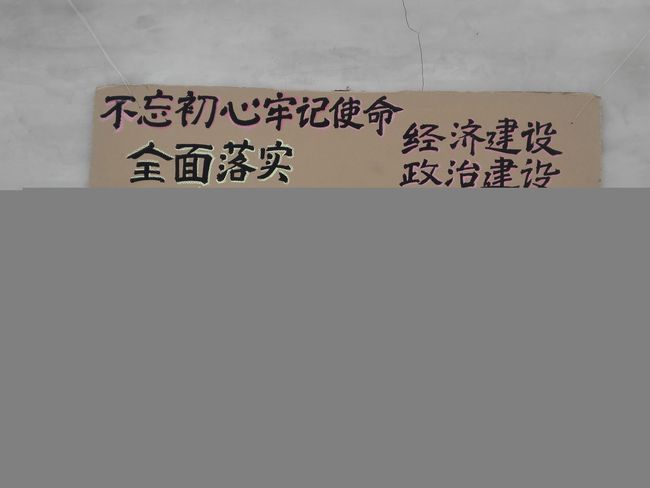 不忘初心牢记使命
全面落实
经济建设
政治建设